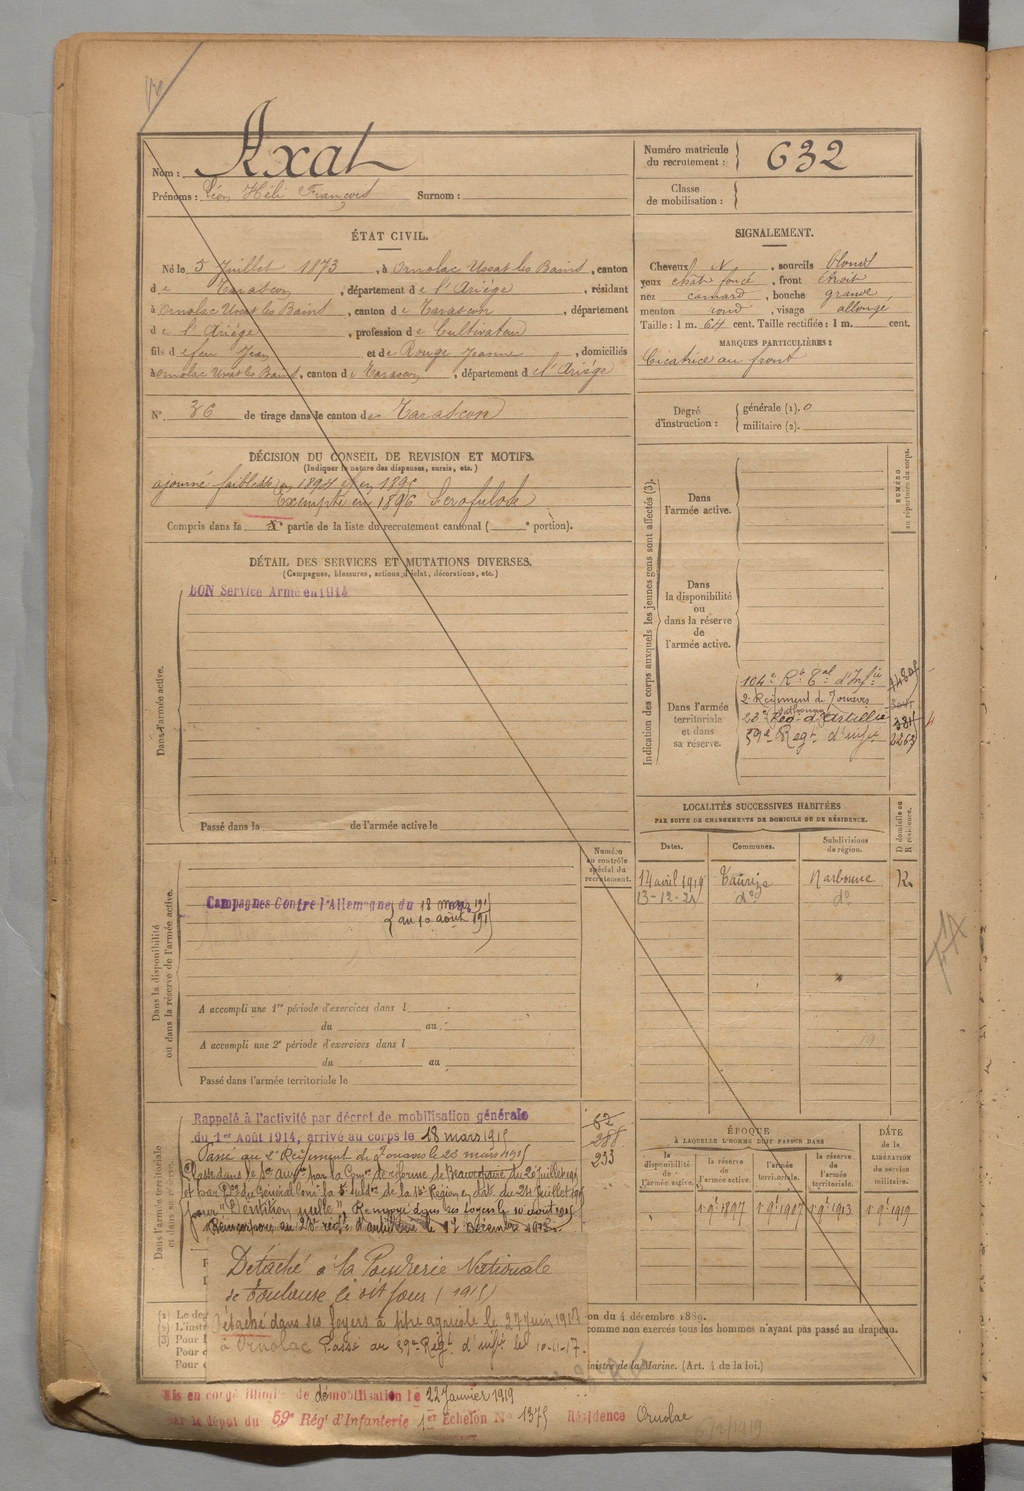 Nom : Axat
Prénoms : Léon Héli François Surnom :
Numéro matricule du recrutement : 632
Classe de mobilisation :
ÉTAT CIVIL.
Né le 5 Juillet 1873, à Ornolac Ussat les Bains, canton
de Tarascon, département de l'Ariége, résidant
à Ornolac Ussat les Bains, canton de Tarascon, département
de l'Ariége, profession de Cultivateur
fils de feu Jean et de Rouge Jeanne, domiciliés
à Ornolac Ussat les Bains, canton de Tarascon, département de l'Ariége
N° 36 de tirage dans le canton de Tarascon
SIGNALEMENT.
Cheveux N, sourcils blonds
yeux chât. foncé, front étroit
nez camard, bouche grande
menton rond, visage allongé
Taille : 1 m. 64 cent. Taille rectifiée : 1 m. cent.
MARQUES PARTICULIÈRES :
Cicatrice au front
Degré d'instruction : générale (1). 0
militaire (2).
DÉCISION DU CONSEIL DE REVISION ET MOTIFS.
(Indiquer la nature des dispenses, sursis, etc.)
ajourné faiblesse en 1894 et en 1895
Exempté en 1896 Scrofulode
Compris dans la partie de la liste du recrutement cantonal ( portion).
DÉTAIL DES SERVICES ET MUTATIONS DIVERSES.
(Campagnes, blessures, actions d'éclat, décorations, etc.)
BON Service Armé en 1914
Dans l'armée active.
Passé dans la de l'armée active le
Indication des corps auxquels les jeunes gens sont affectés (3).
NUMÉRO au répertoire du corps.
Dans l'armée active.
Dans la disponibilité ou dans la réserve de l'armée active.
Dans l'armée territoriale et dans sa réserve.
104e Rt Tal d'Infie
2e Régiment de Zouaves
23e Rég. d'Artillie
59e Régt d'infie 2263
LOCALITÉS SUCCESSIVES HABITÉES
PAR SUITE DE CHANGEMENTS DE DOMICILE OU DE RÉSIDENCE.
Dates. Communes. Subdivisions de région. D domicile ou R résidence.
14 avril 1919 Taurize Narbonne R.
13-12-24 do do
Dans la disponibilité ou dans la réserve de l'armée active.
Numéro au contrôle spécial du recrutement.
Campagnes Contre l'Allemagne, du 18 mars 191
au 10 août 191
A accompli une 1re période d'exercices dans l
du au
A accompli une 2e période d'exercices dans l
du au
Passé dans l'armée territoriale le
Dans l'armée territoriale et dans sa réserve.
Rappelé à l'activité par décret de mobilisation générale
du 1er Août 1914, arrivé au corps le 18 mars 1915
Passé au 2e Régiment de Zouaves le 23 mars 1915
Classé dans le Sce auxre par la Comon de réforme de du 20 juillet 191
et par Don du Général Comt la 5e Subdon de la Région en date du 24 juillet 1915
pour "Dentition nulle". Renvoyé dans ses foyers le 10 août 1915
au 23e régt d'artillerie le 17 Décembre 1915
62
288
233
Détaché à la Poudrerie Nationale
de Toulouse le dit jour (1915)
Détaché dans ses foyers à titre agricole le 27 juin 1917
à Ornolac Passé au 59e Régt d'infie le 10-11-17.
ÉPOQUE
À LAQUELLE L'HOMME DOIT PASSER DANS
la disponibilité de l'armée active. la réserve de l'armée active. l'armée territoriale. la réserve de l'armée territoriale.
DATE de la LIBÉRATION du service militaire.
1897 1907 1913 1919
(1) Le deg
(2) L'inst
(3) Pour
on du 4 décembre 1889.
comme non exercés tous les hommes n'ayant pas passé au drapeau.
nistre de la Marine. (Art. 4 de la loi.)
Mis en congé illimité de démobilisation le 22 Janvier 1919
par le dépôt du 59e Rég. d'Infanterie 1er Echelon N° 1375 Résidence Ornolac